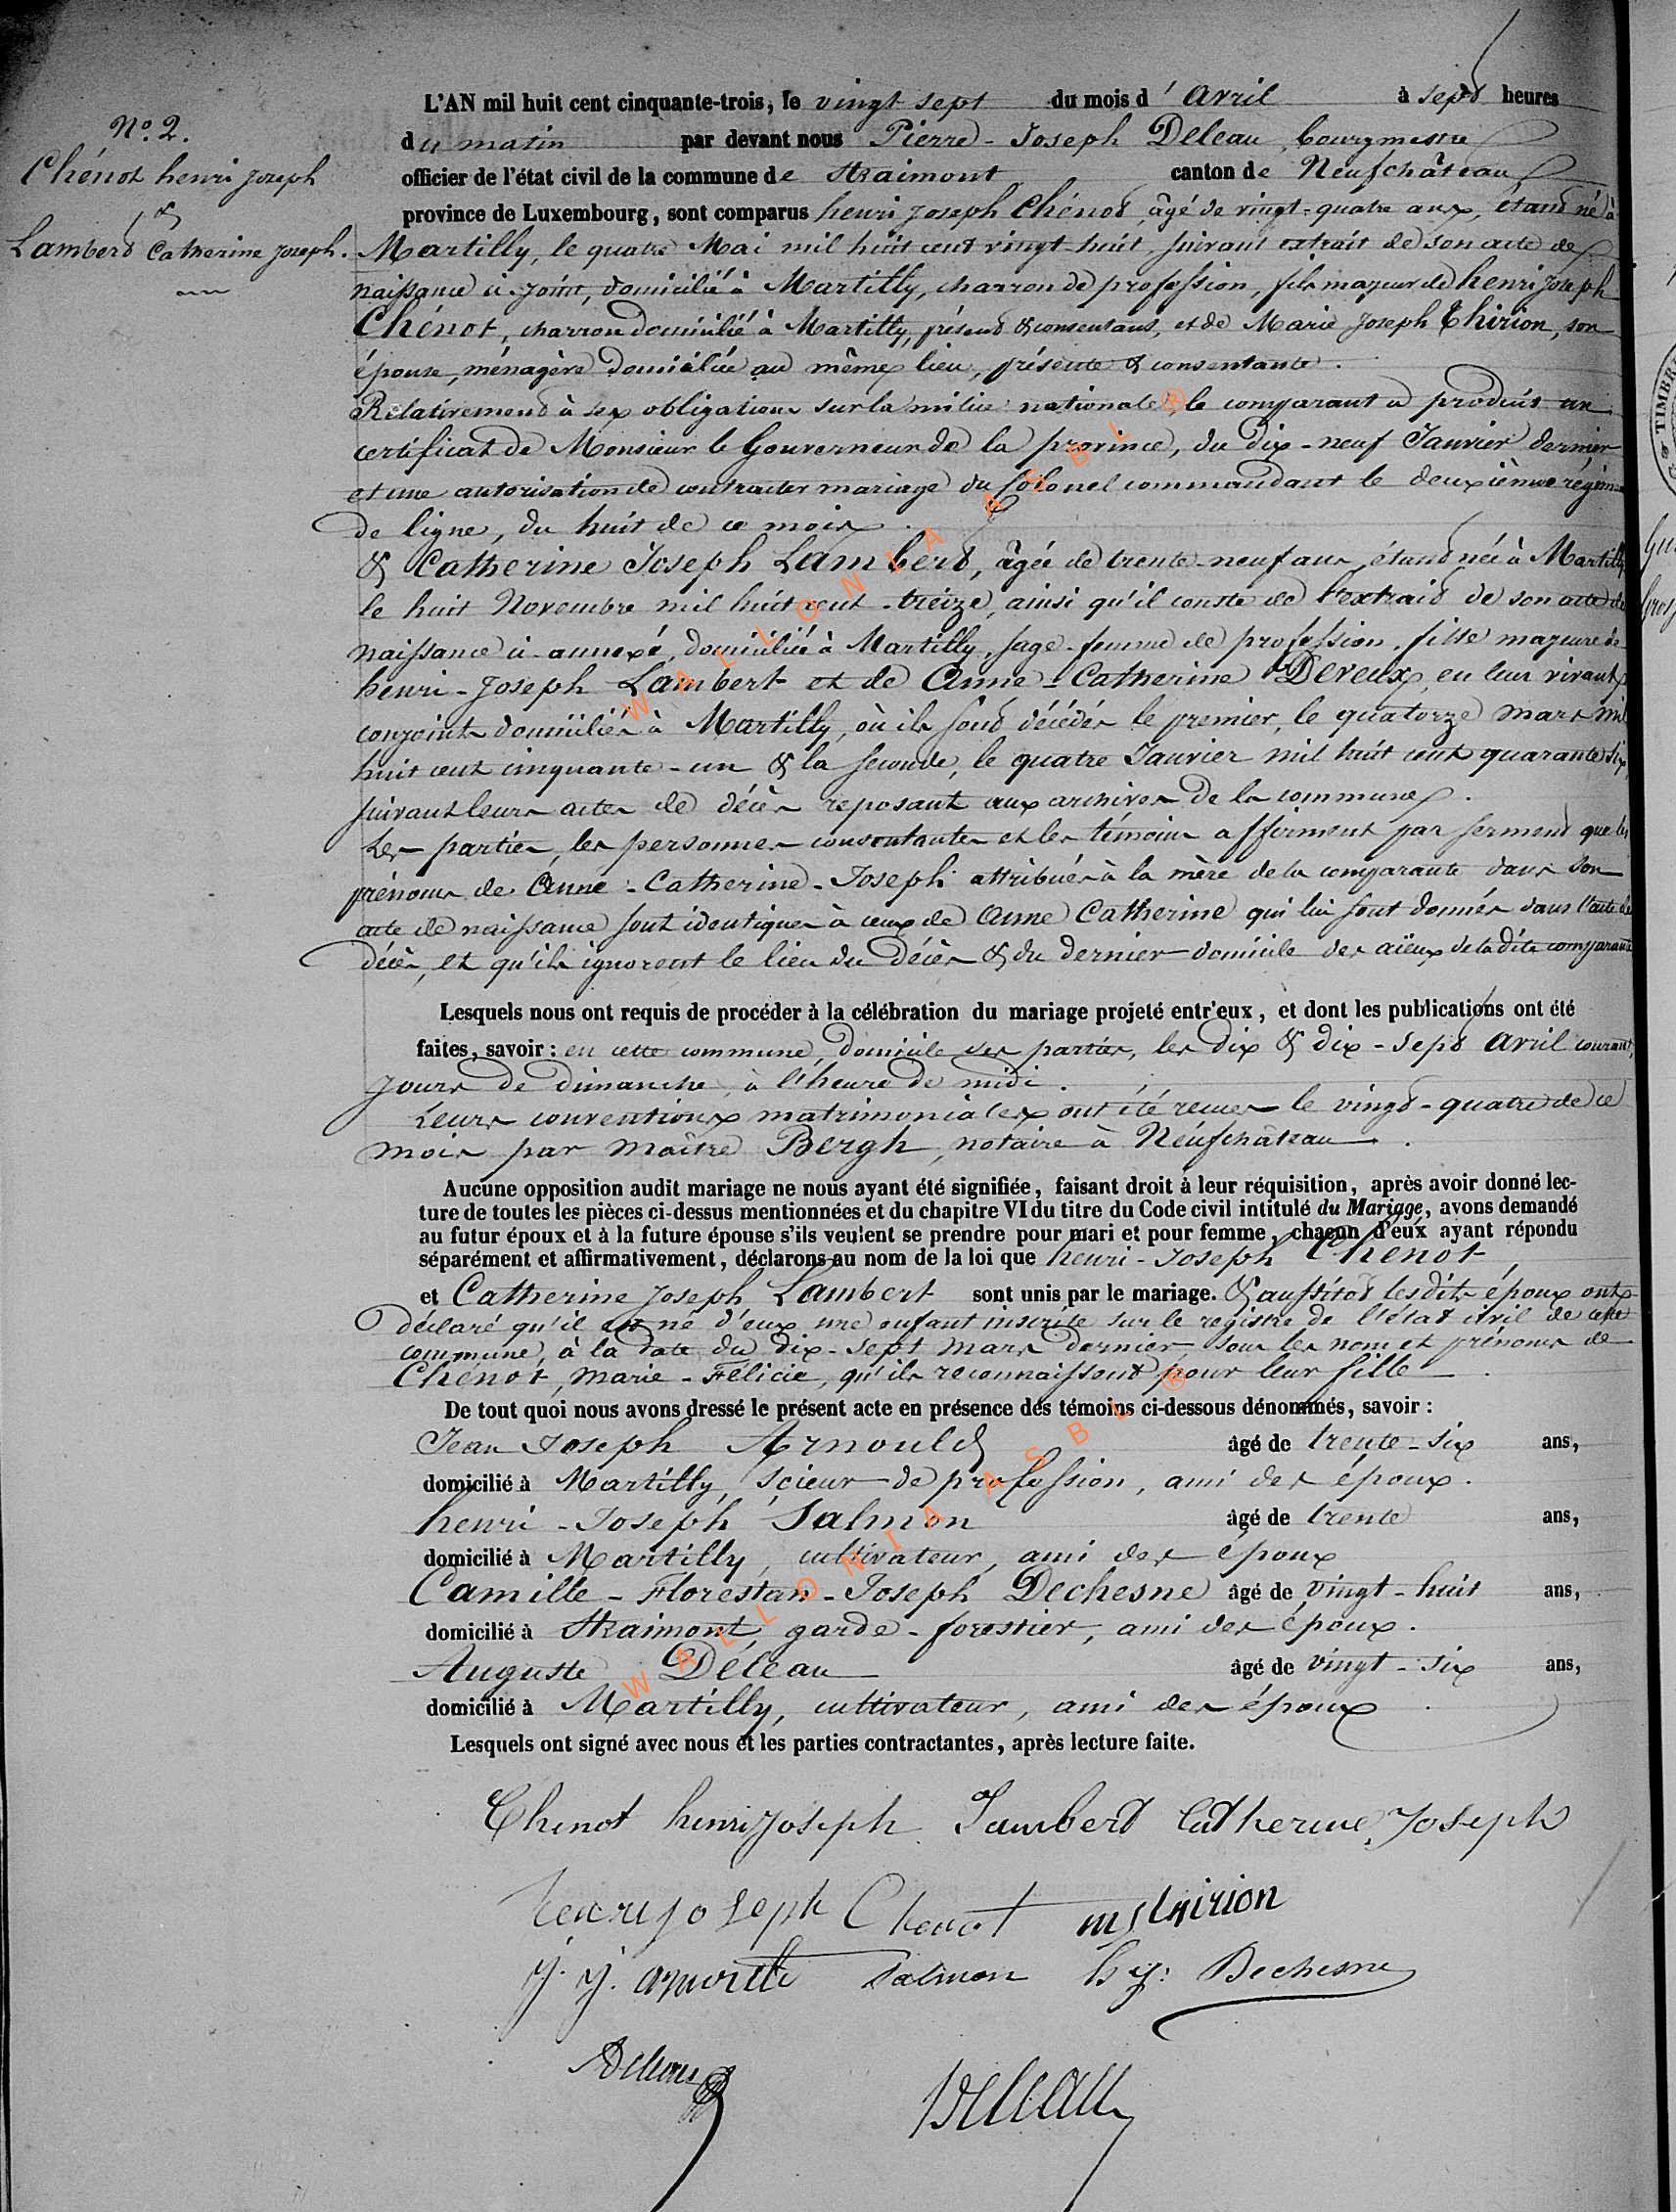 N.º 2.
Chénot henri joseph
&
Lambert Catherine joseph.
L'AN mil huit cent cinquante-trois, le vingt sept du mois d'Avril à sept heures
du matin par devant nous Pierre-Joseph Deleau, bourgmestre
officier de l'état civil de la commune de Straimont canton de Neufchâteau,
province de Luxembourg, sont comparus henri joseph Chénot, âgé de vingt-quatre ans, étant né à
Martilly, le quatre Mai mil huit cent vingt-huit, suivant extrait de son acte de
naissance ci-joint, domicilié à Martilly, charron de profession, fils majeur de henri joseph
Chénot, charron domicilié à Martilly, présent & consentant, et de Marie Joseph Thirion, son
épouse, ménagère domiciliée au même lieu, présente & consentante.
Relativement à ses obligations sur la milice nationale, le comparant a produit un
certificat de Monsieur le Gouverneur de la province, du dix-neuf Janvier dernier
et une autorisation de contracter mariage du Colonel commandant le deuxième régim
de ligne, du huit de ce mois.
& Catherine Joseph Lambert, âgée de trente-neuf ans, étant née à Martilly
le huit Novembre mil huit cent-treize, ainsi qu'il conste de l'extrait de son acte de
naissance ci-annexé, domiciliée à Martilly, sage-femme de profession, fille majeure de
henri-Joseph Lambert et de Anne-Catherine Deveux, en leur vivant
conjoints domiciliés à Martilly, où ils sont décédés le premier, le quatorze mars mil
huit cent cinquante-un & la seconde, le quatre Janvier mil huit cent quarante six,
suivant leurs actes de décès reposant aux archives de la commune.
Les parties, les personnes consentantes et les témoins affirment par serment que les
prénoms de Anne-Catherine-Joseph attribués à la mère de la comparante dans son
acte de naissance sont identiques à ceux de Anne Catherine qui lui sont donnés dans l'acte de
décès, et qu'ils ignorent le lieu du décès & du dernier domicile des aïeux de la dite comparante
Lesquels nous ont requis de procéder à la célébration du mariage projeté entr'eux, et dont les publications ont été
faites, savoir: en cette commune, domicile des parties, les dix & dix-sept Avril courant,
jours de dimanche, à l'heure de midi.
Leurs conventions matrimoniales ont été reçues le vingt-quatre de ce
mois par Maître Bergh, notaire à Neufchâteau.
Aucune opposition audit mariage ne nous ayant été signifiée, faisant droit à leur réquisition, après avoir donné lec-
ture de toutes les pièces ci-dessus mentionnées et du chapitre VI du titre du Code civil intitulé du Mariage, avons demandé
au futur époux et à la future épouse s'ils veulent se prendre pour mari et pour femme, chacun d'eux ayant répondu
séparément et affirmativement, déclarons au nom de la loi que henri-Joseph Chénot
et Catherine Joseph Lambert sont unis par le mariage. & aussitôt lesdits époux ont
déclaré qu'il est né d'eux une enfant inscrite sur le registre de l'état civil de cette
commune, à la date du dix-sept mars dernier, sous les nom et prénoms de
Chénot, Marie-Félicie, qu'ils reconnaissent pour leur fille.
De tout quoi nous avons dressé le présent acte en présence des témoins ci-dessous dénommés, savoir:
Jean Joseph Arnould âgé de trente-six ans,
domicilié à Martilly, scieur de profession, ami des époux.
henri-Joseph Salmon âgé de trente ans,
domicilié à Martilly, cultivateur, ami des époux
Camille-Florestan-Joseph Dechesne âgé de vingt-huit ans,
domicilié à Straimont, garde-forestier, ami des époux.
Auguste Deleau âgé de vingt-six ans,
domicilié à Martilly, cultivateur, ami des époux.
Lesquels ont signé avec nous et les parties contractantes, après lecture faite.
Chenot henri joseph Lambert Catherine Joseph
henry joseph Chenot m j thirion
j. j. Salmon h j: Dechesne
Deleau
Deleau
WALLONIA ASBL ®
WALLONIA ASBL ®
TIMBRE